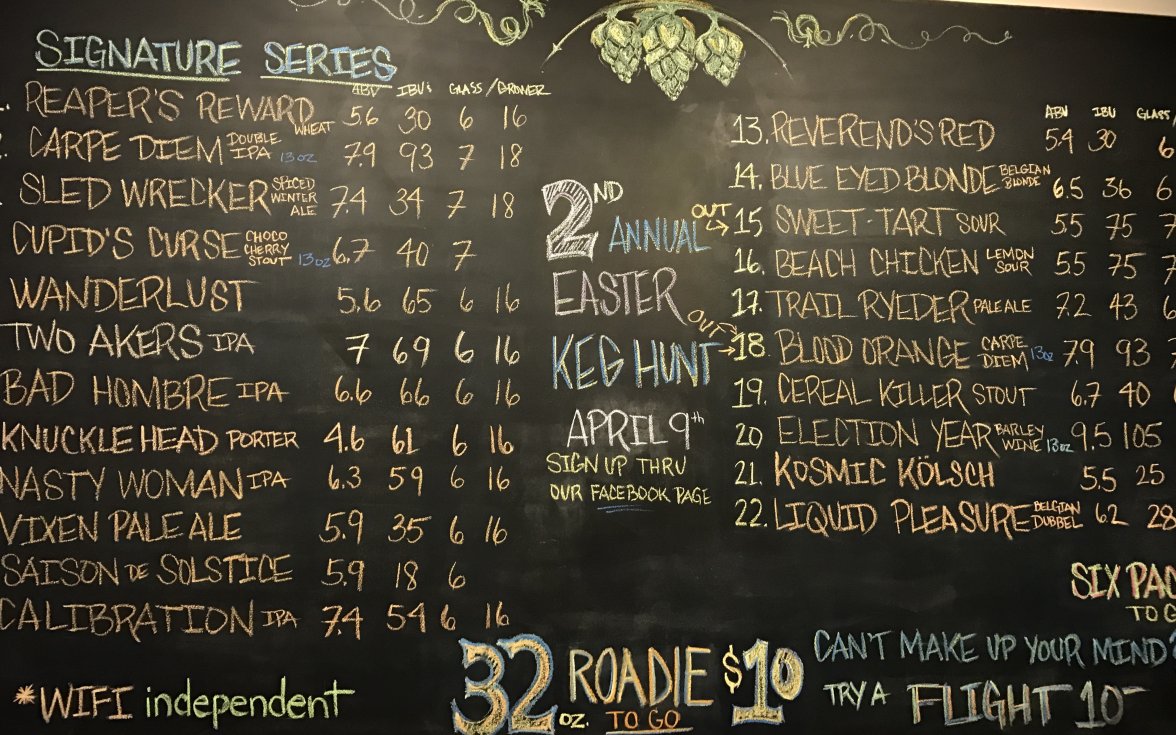 SIGNATURE SERIES
ABV IBU's GLASS/GROWLER
REAPER'S REWARD WHEAT 5.6 30 6 16
CARPE DIEM DOUBLE IPA 13oz 7.9 93 7 18
SLED WRECKER SPICED WINTER ALE 7.4 34 7 18
CUPID'S CURSE CHOCO CHERRY STOUT 13oz 6.7 40 7
WANDERLUST 5.6 65 6 16
TWO AKERS IPA 7 69 6 16
BAD HOMBRE IPA 6.6 66 6 16
KNUCKLEHEAD PORTER 4.6 61 6 16
NASTY WOMAN IPA 6.3 59 6 16
VIXEN PALE ALE 5.9 35 6 16
SAISON DE SOLSTICE 5.9 18 6
CALIBRATION IPA 7.4 54 6 16
*WIFI independent
2ND
ANNUAL
EASTER
KEG HUNT
APRIL 9th
SIGN UP THRU
OUR FACEBOOK PAGE
ABV IBU GLASS/
13. REVEREND'S RED 5.4 30 6
14. BLUE EYED BLONDE BELGIAN BLONDE 6.5 36 6
OUT → 15 SWEET-TART SOUR 5.5 75 7
16. BEACH CHICKEN LEMON SOUR 5.5 75 7
17. TRAIL RYEDER PALE ALE 7.2 43 6
OUT → 18. BLOOD ORANGE CARPE DIEM 13oz 7.9 93 7
19. CEREAL KILLER STOUT 6.7 40
20 ELECTION YEAR BARLEY WINE 13oz 9.5 105
21. KOSMIC KÖLSCH 5.5 25
22. LIQUID PLEASURE BELGIAN DUBBEL 6.2 28
SIX PAC
TO G
32 oz. ROADIE TO GO $10
CAN'T MAKE UP YOUR MIND?
TRY A FLIGHT 10-